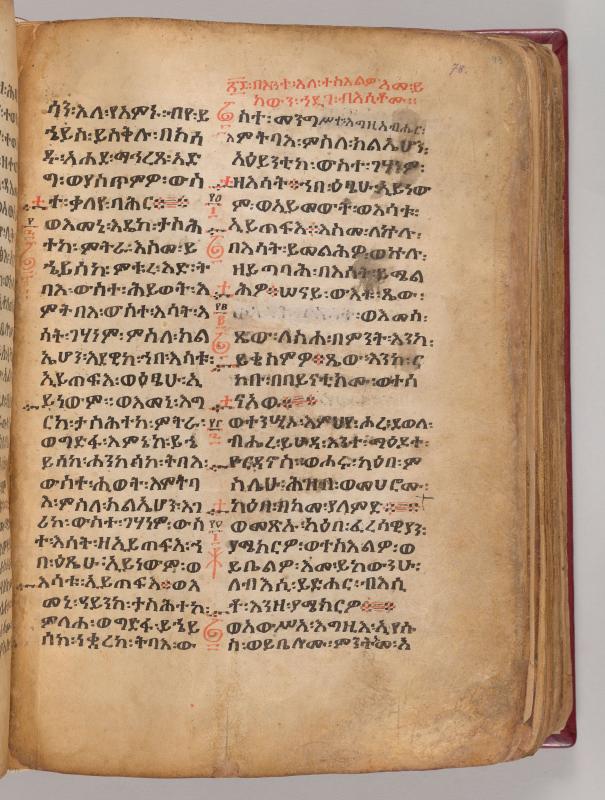 ሳን፡እለ፡የአምኑ፡ብየ፡ይ
ኄይስ፡ይስቅሉ፡በክሳ
ዱ፡እሐደ፡ማኅረጸ፡አድ
ግ፡ወያስጥምዎ፡ውስ
ተ፡ቀላየ፡ባሕር፨
ወእመኒ፡እዴከ፡ታስሕ
ተከ፡ምትራ፡እስመ፡ይ
ኄይሰከ፡ምቱረ፡እድ፡ት
ባእ፡ውስተ፡ሕይወት፡እ
ምትባእ፡ውስተ፡እሳት፡እ
ሳት፡ገሃነም፡ምስለ፡ክል
ኤሆን፡እደዊከ፡ኀበ፡እሳቱ፡
ኢይጠፍእ፡ወዕፄሁ፡ኢ
ይነውም።ወእመኒ፡እግ
ርከ፡ታስሕተከ፡ምትራ፡
ወግድፋ፡እምኔከ፡ይኄ
ይሰከ፡ሐንካሰከ፡ትባእ፡
ውስተ፡ሒወት፡እምትባ
እ፡ምስለ፡ክልኤሆን፡እገ
ሪከ፡ውስተ፡ገሃነም፡ውስ
ተ፡እሳት፡ዘኢይጠፍእ፡ኀ
በ፡ዕፄሁ፡ኢይነውም፡ወ
እሳቱ፡ኢይጠፍእ፨ወእ
መኒ፡ዓይንከ፡ታስሕተከ፡
ምላሐ፡ወግድፋ፡ይኄይ
ሰከ፡ነቋረከ፡ትባእ፡ው
78.
፳፮፡በእንተ፡እለ፡ተስእልዎ፡እመ፡ይ
ከውን፡ኀዲገ፡ብእሲቶሙ።
ስተ፡መንግሥተ፡እግዚአብሔር፡
እምትባእ፡ምስለ፡ክልኤሆን፡
አዕይንቲከ፡ውስተ፡ገሃነም፡
ዘእሳት፨ኀበ፡ዕፄሁ፡ኢይነው
ም፡ወኢይመውት፡ወእሳቱ፡
ኢይጠፍእ፨እስመ፡ለኵሉ፡
በእሳት፡ይመልሕዎ፡ወኵሉ፡
ዘይጣባሕ፡በእሳት፡ይሜል
ሕዎ፨ሠናይ፡ውእቱ፡ጼው፡
ወእመሰ፡
ጼው፡ለስሐ፡በምንት፡እንከ፡
ይቄስምዎ፨ጼው፡እንከ፡ር
ከቡ፡በበይናቲክሙ፡ወተሰ
ናአው፨
ወተንሢኦ፡እምህየ፡ሖረ፡ደወለ፡
ብሔረ፡ይሁዳ፡እንተ፡ማዕዶተ፡
ዮርዳኖስ፡ወሖሩ፡ካዕበ፡ም
ስሌሁ፡ሕዝብ፡ወመሀሮሙ፡
ካዕበ፡በከመ፡ያለምድ፨
ወመጽኡ፡ካዕበ፡ፈረሳዊያን፡
ያሜክርዎ፡ወተስእልዎ፡ወ
ይቤልዎ፡እመ፡ይከውንሁ፡
ለብእሲ፡ይድሐር፡ብእሲ
ቶ፡እንዘ፡ያሜክርዎ፨
ወአውሥአ፡እግዚእ፡ኢየሱ
ስ፡ወይቤሎሙ፡ምንትመ፡አ